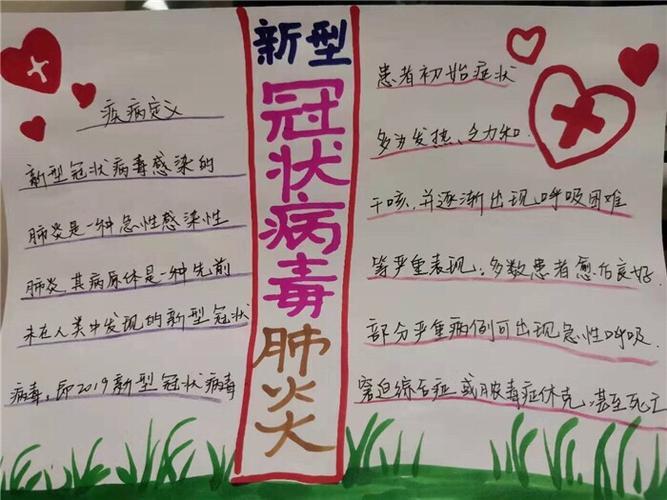 新型冠状病毒肺炎
疾病定义
新型冠状病毒感染的
肺炎是一种急性感染性
肺炎,其病原体是一种先前
未在人类中发现的新型冠状
病毒,即2019新型冠状病毒
患者初始症状
多为发热、乏力和
干咳,并逐渐出现呼吸困难
等严重表现。多数患者愈后良好,
部分严重病例可出现急性呼吸
窘迫综合征或脓毒症休克,甚至死亡